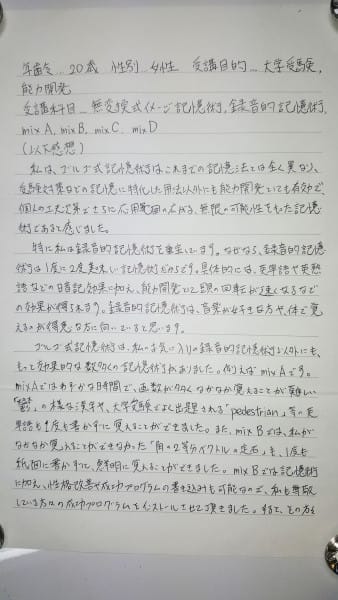 年齢…20歳　性別…女性　受講目的…大学受験、
能力開発
受講科目…無変換式イメージ記憶術、録音的記憶術、
mix A、mix B、mix C、mix D
(以下感想)
私は、ゴルゴ式記憶術はこれまでの記憶法とは全く異なり、
受験対策などの記憶に特化した用法以外にも能力開発としても有効で、
個人の工夫次第でさらに応用範囲の広がる、無限の可能性をもった記憶
術であると感じました。
特に私は録音的記憶術を重宝しています。なぜなら、録音的記憶
術は1度に2度美味しい記憶術だからです。具体的には、英単語や英熟
語などの暗記効果に加え、能力開発として頭の回転が速くなるなど
の効果が得られます。録音的記憶術は、音楽が好きな方や、体で覚
えるのが得意な方に向いていると思います。
ゴルゴ式記憶術は、私のお気に入りの録音的記憶術以外にも、
とても効果的な数多くの記憶術がありました。例えばmix Aです。
mix Aではわずかな時間で、画数が多くなかなか覚えることが難しい
「鬱」の様な漢字や、大学受験でよく出題される「pedestrian」等の英
単語も1度も書かずに覚えることができました。また、mix Bでは、私が
なかなか覚えることができなかった「角の2等分ベクトルの定石」も、1度も
紙面に書かずに、鮮明に覚えることができました。mix Bでは記憶術
に加え、性格改善や成功プログラムの書き込みも可能なので、私も尊敬
している方々の成功プログラムをインストールさせて頂きました。すると、その方々